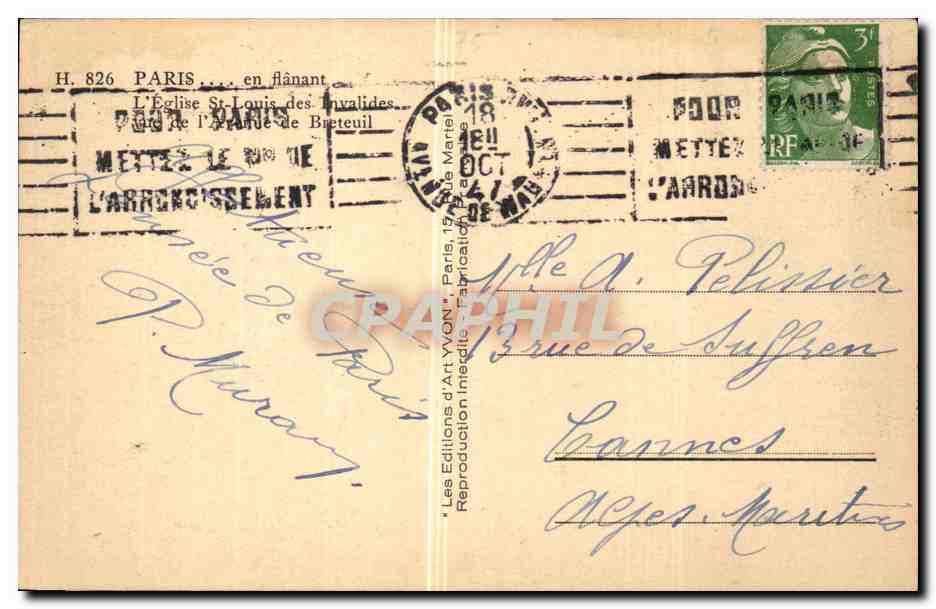 H. 826 PARIS .... en flânant
L'Église St-Louis des Invalides
Vue de l'Avenue de Breteuil
POUR PARIS
METTEZ LE N° DE
L'ARRONDISSEMENT
PARIS
18
18H
OCT
47
POUR PARIS
METTEZ DE
L'ARROND
3F
POSTES
RF
Pensée de
Paris
P.
"Les Editions d'Art YVON", Paris, 15, Rue Martel
Reproduction Interdite - Fabrication Française
CPAPHIL
Mlle A. Pelissier
13 rue de Suffren
Cannes
Alpes-Maritimes